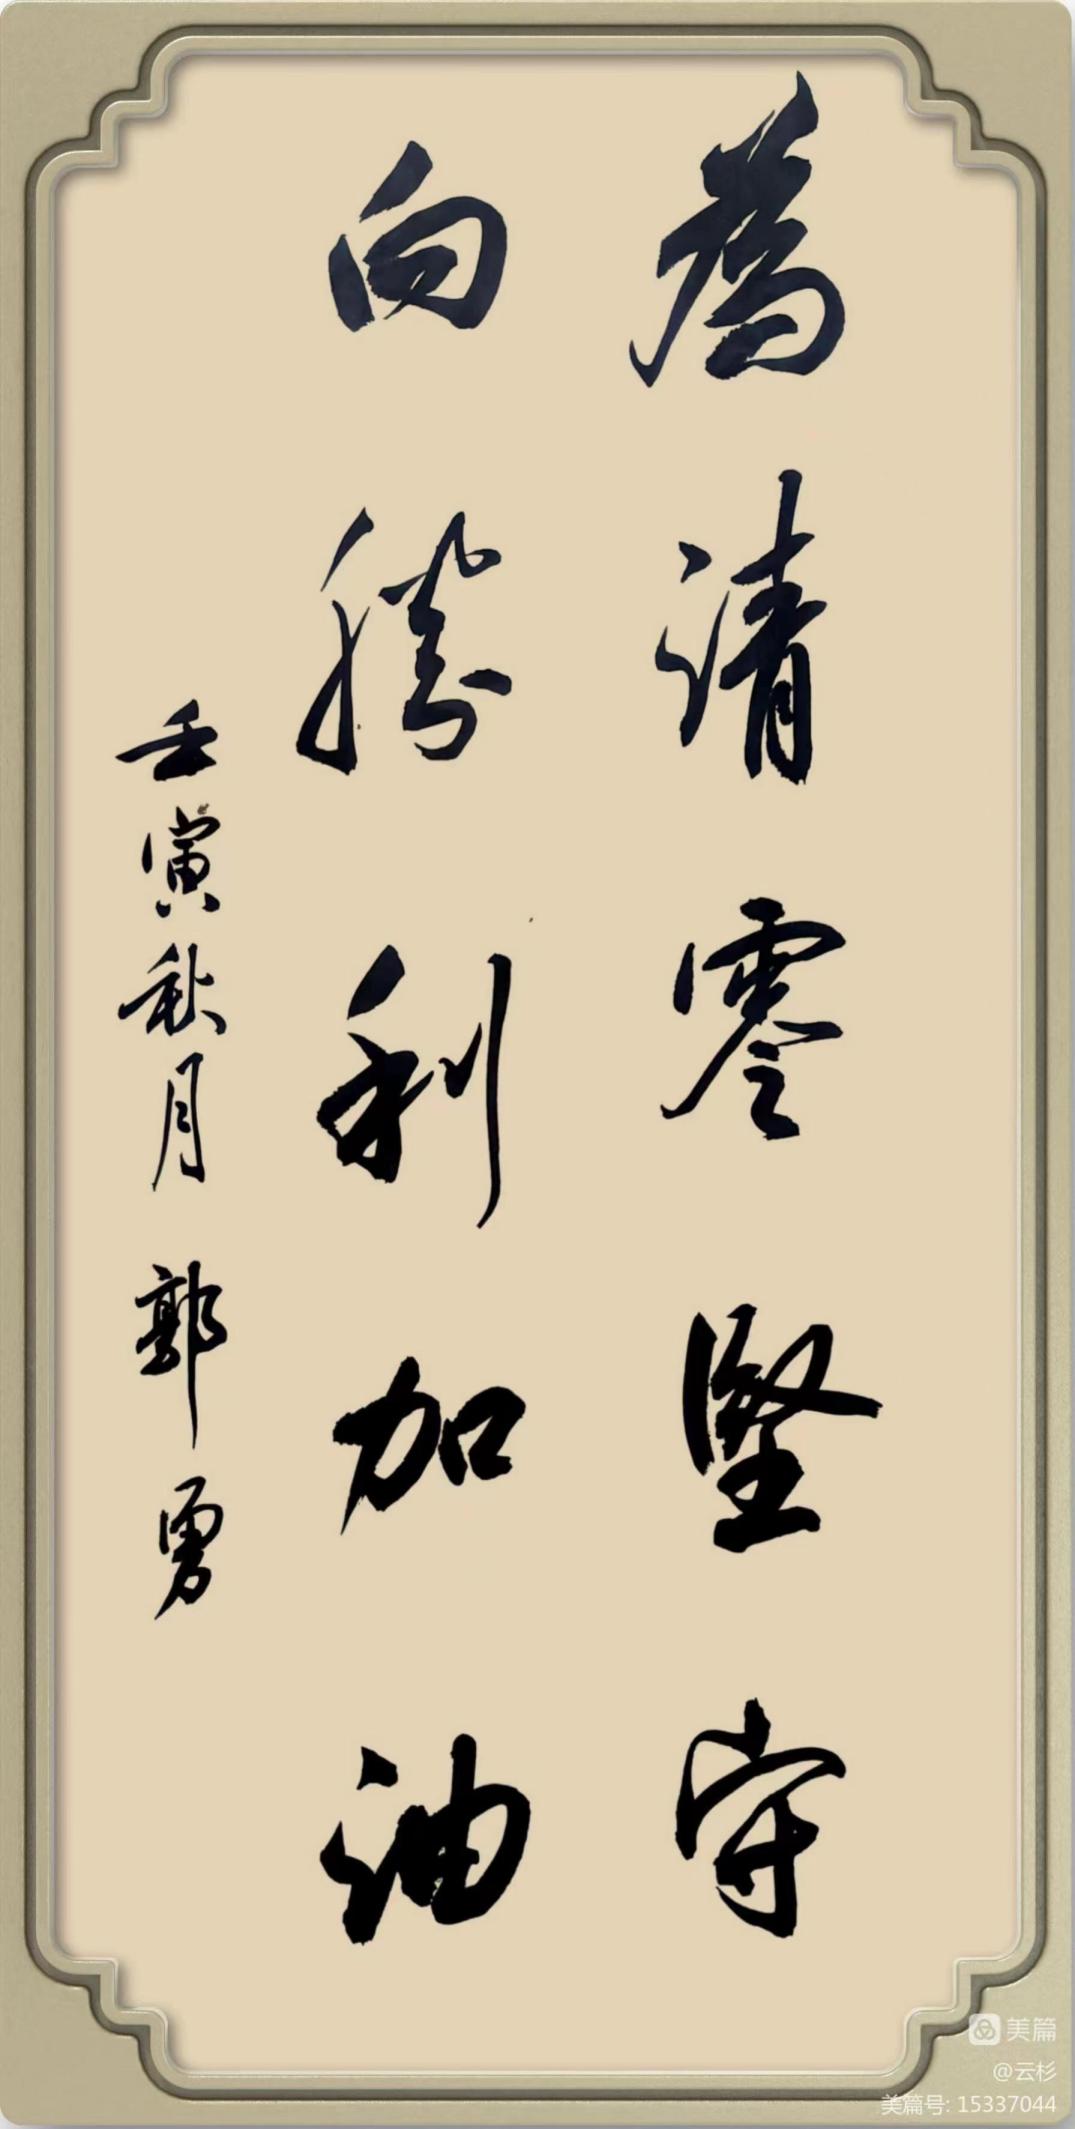 為清零堅守
向勝利加油
壬寅秋月 郭勇
美篇
@云杉
美篇号: 15337044